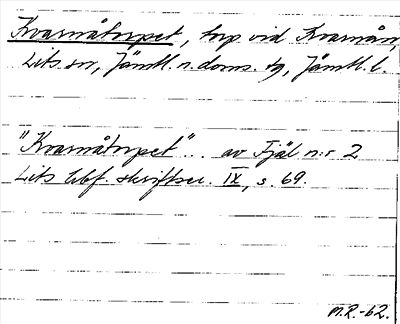 Kvarnåtorpet, torp vid Kvarnån,
Lits sn, Jämtl. n. doms. tg, Jämtl. l.
"Kvarnåtorpet"... av Fjäl n:r 2
Lits hbf. skriftser. IX, s. 69.
M.R.-62.